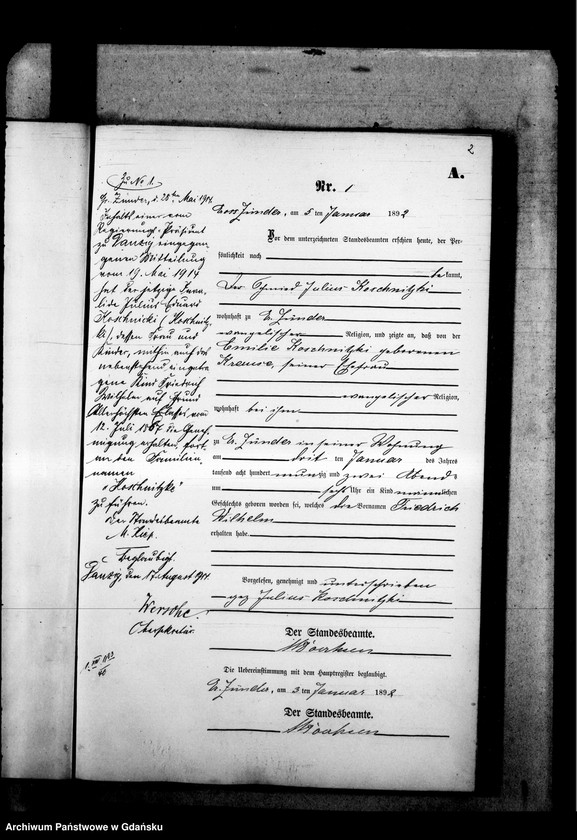 2
A.
Nr. 1
Gross Zünder, am 5 ten Januar 1892
Vor dem unterzeichneten Standesbeamten erschien heute, der Per-
sönlichkeit nach
bekannt,
Der Julius Koschnitzki
wohnhaft zu Gr. Zünder
evangelischer Religion, und zeigte an, daß von der
Emilie Koschnitzki geborenen
Krause, seiner Ehefrau
evangelischer Religion,
wohnhaft bei ihm
zu Gr. Zünder in seiner Wohnung
am dritten Januar des Jahres
tausend acht hundert neunzig und zwei Abends
um sechs Uhr ein Kind männlichen
Geschlechts geboren worden sei, welches die Vornamen Friedrich
Wilhelm
erhalten habe.
Vorgelesen, genehmigt und unterschrieben
gez Julius Koschnitzki
Der Standesbeamte.
Die Uebereinstimmung mit dem Hauptregister beglaubigt.
Gr. Zünder, am 5 ten Januar 1892
Der Standesbeamte.
Zu No 1.
Gr. Zünder, d. 28ten Mai 1914
Inhalts einer vom
Regierungs-Präsident
zu Danzig eingegan-
genen Mitteilung
vom 19. Mai 1914
hat der jetzige Inva-
lide Julius Eduard
Koschnicki (Koschnitz-
ki), dessen Frau und
Kinder, mithin auch das
nebenstehend eingetra-
gene Kind Friedrich
Wilhelm auf Grund
Allerhöchsten Erlasses vom
12. Juli 1867 die Geneh-
migung erhalten, fort-
an den Familien-
namen
"Koschnitzke"
zu führen.
Der Standesbeamte
Beglaubigt.
Danzig, den 17 August 1914.
Obersekretär.
Archiwum Państwowe w Gdańsku